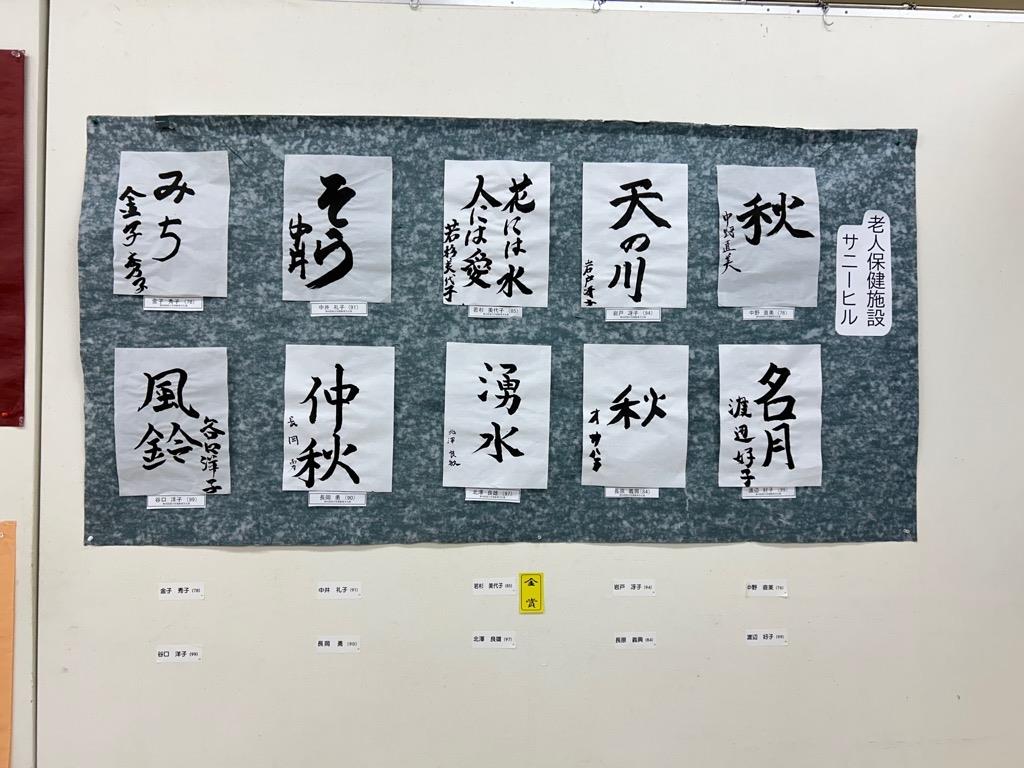 老人保健施設
サニーヒル
秋
中野直美
中野 直美 (76)
天の川
岩戸冴子
岩戸 冴子 (94)
花には水
人には愛
若杉美代子
若杉 美代子 (85)
そう
中井 礼子 (91)
みち
金子秀子
金子 秀子 (78)
名月
渡辺好子
渡辺 好子 (99)
秋
湧水
北澤良雄
北澤 良雄 (97)
仲秋
長岡勇
長岡 勇 (90)
風鈴
谷口洋子
谷口 洋子 (99)
金子 秀子 (78)
中井 礼子 (91)
若杉 美代子 (85)
金賞
岩戸 冴子 (94)
中野 直美 (76)
谷口 洋子 (99)
長岡 勇 (90)
北澤 良雄 (97)
長原 義興 (84)
渡辺 好子 (99)